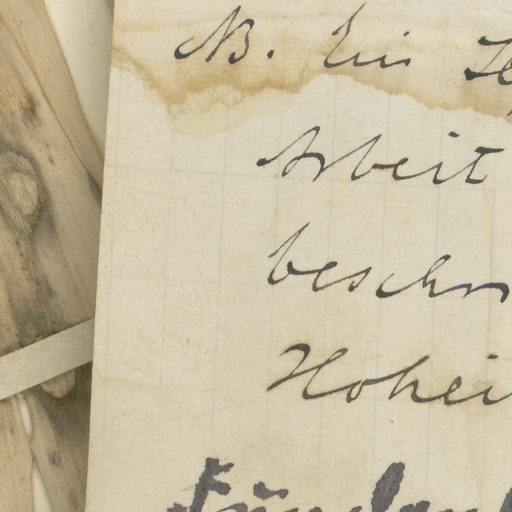 NB. Ein
Arbeit
beschr
Hohei